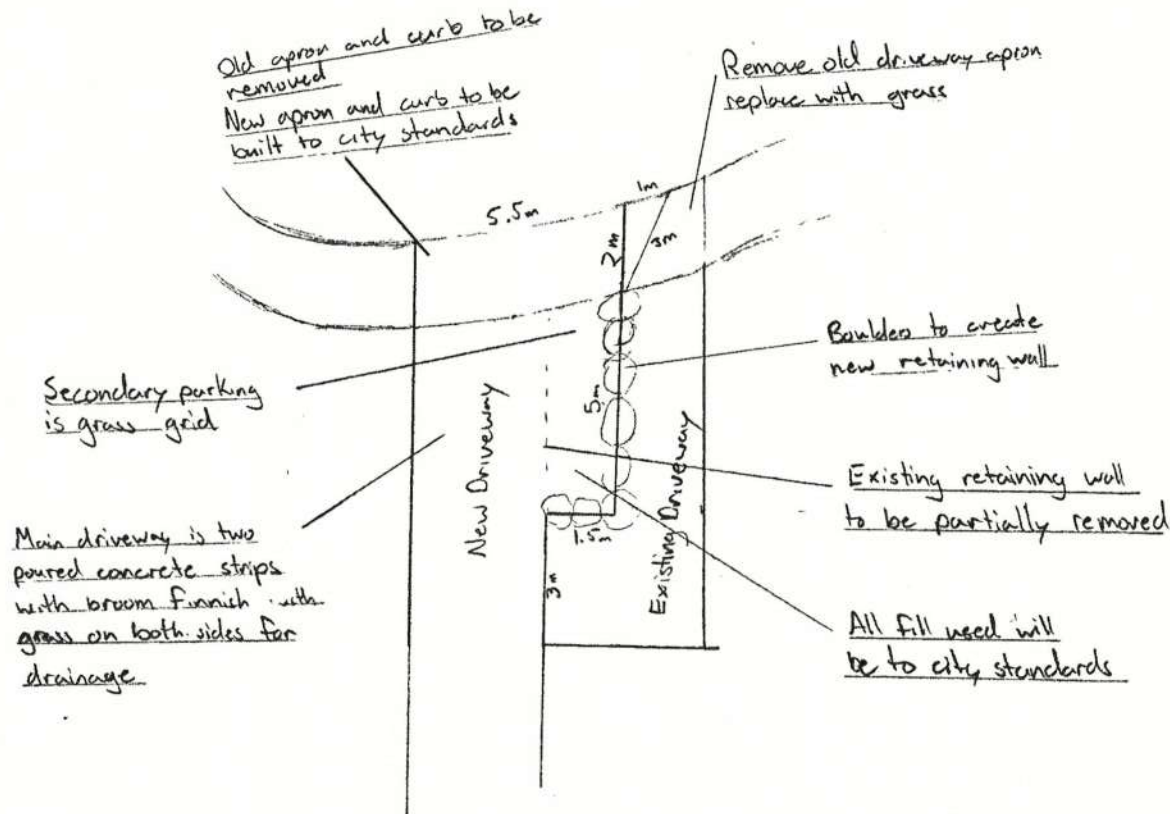 Old apron and curb to be
removed
New apron and curb to be
built to city standards
Remove old driveway apron
replace with grass
5.5m
1m
2m
3m
Secondary parking
is grass grid
Boulders to create
new retaining wall
5m
New Driveway
Existing Driveway
Existing retaining wall
to be partially removed
1.5m
3m
Main driveway is two
poured concrete strips
with broom finnish with
grass on both sides for
drainage
All fill used will
be to city standards